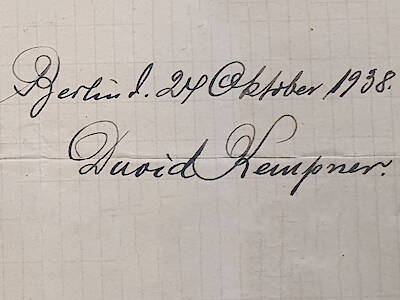 Berlin d. 24 Oktober 1938.
David Kempner.